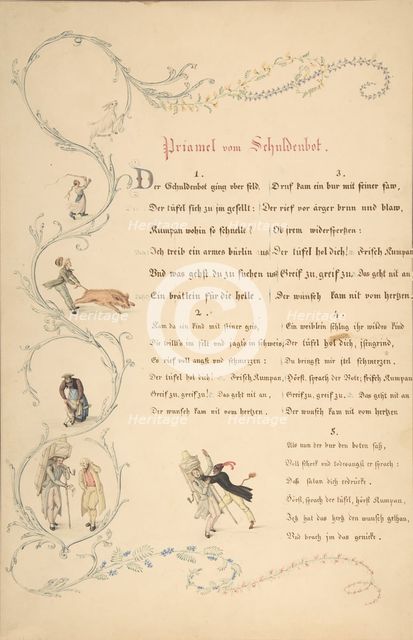 Priamel vom Schuldenbot.
1.
Der Schuldenbot ging ober feld,
Der tüfel sich zu im gesellt:
Kumpan wohin so schnelle?
Ich treib ein armes bürlin us
Und was gehst du zu suchen us
Ein brätlein für die helle.
2.
Kam da ein kind mit siner geis,
Die in still und jaglo im schweis;
Es rief voll angst und schmerzen:
Der tüfel hol dich! Frisch Kumpan,
Greif zu, greif zu! Das geht nit an,
Der wunsch kam nit vom herzen.
3.
Druf kam ein bur mit seiner saw,
Der rief vor ärger brun und blaw,
Ob irem widersprosten:
Der tüfel hol dich! Frisch Kumpan
Greif zu, greif zu. Das geht nit an
Der wunsch kam nit vom herzen.
4.
Ein weiblin schlug ihr wildes kind
Der tüfel hol dich,
Du bringst mir itel schmerzen.
Hörst, sprach der Bote; frisch Kumpan
Greif zu, greif zu. Das geht nit an
Der wunsch kam nit vom herzen
5.
Als nun der bur den boten sah,
Voll schrik und todesangst er sprach:
Daß satan dich erdrücke.
Hörst, sprach der tüfel, hörst Kumpan,
Jetzt hat das herz den wunsch gethan,
Und brach im das genicke.
Heritage
Heritage
Heritage
Heritage
Heritage
Heritage
Heritage
Heritage
Heritage
©